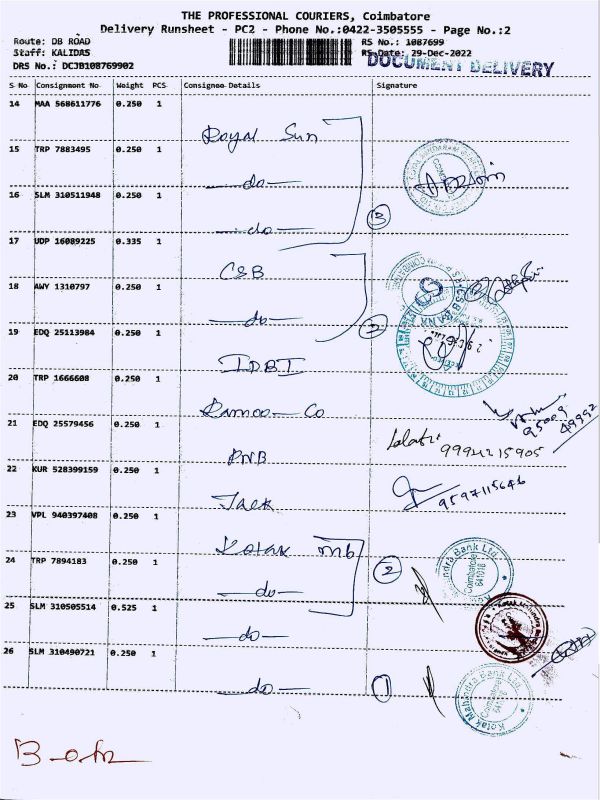 THE PROFESSIONAL COURIERS, Coimbatore
Delivery Runsheet - PC2 - Phone No.:0422-3505555 - Page No.:2
Route: DB ROAD
RS No.: 1087699
Staff: KALIDAS
RS Date: 29-Dec-2022
DRS No.: DCJB108769902
DOCUMENT DELIVERY
S No Consignment No Weight PCS Consignee Details Signature
14 MAA 568611776 0.250 1
Royal Sun
15 TRP 7883495 0.250 1
-do-
16 SLM 310511948 0.250 1
-do-
3
17 UDP 16089225 0.335 1
CSB
18 AWY 1310797 0.250 1
-do-
19 EDQ 25113984 0.250 1
IDBI
20 TRP 1666608 0.250 1
Ramoo-Co
95009
49992
21 EDQ 25579456 0.250 1
PNB
22 KUR 528399159 0.250 1
Jack
9597115646
23 VPL 940397408 0.250 1
Kotak mb
24 TRP 7894183 0.250 1
-do-
2
Coimbatore
641018
25 SLM 310505514 0.525 1
-do-
Kotak Mahindra
26 SLM 310490721 0.250 1
-do-
1
Kotak Mahindra Bank Ltd.
Coimbatore
641018